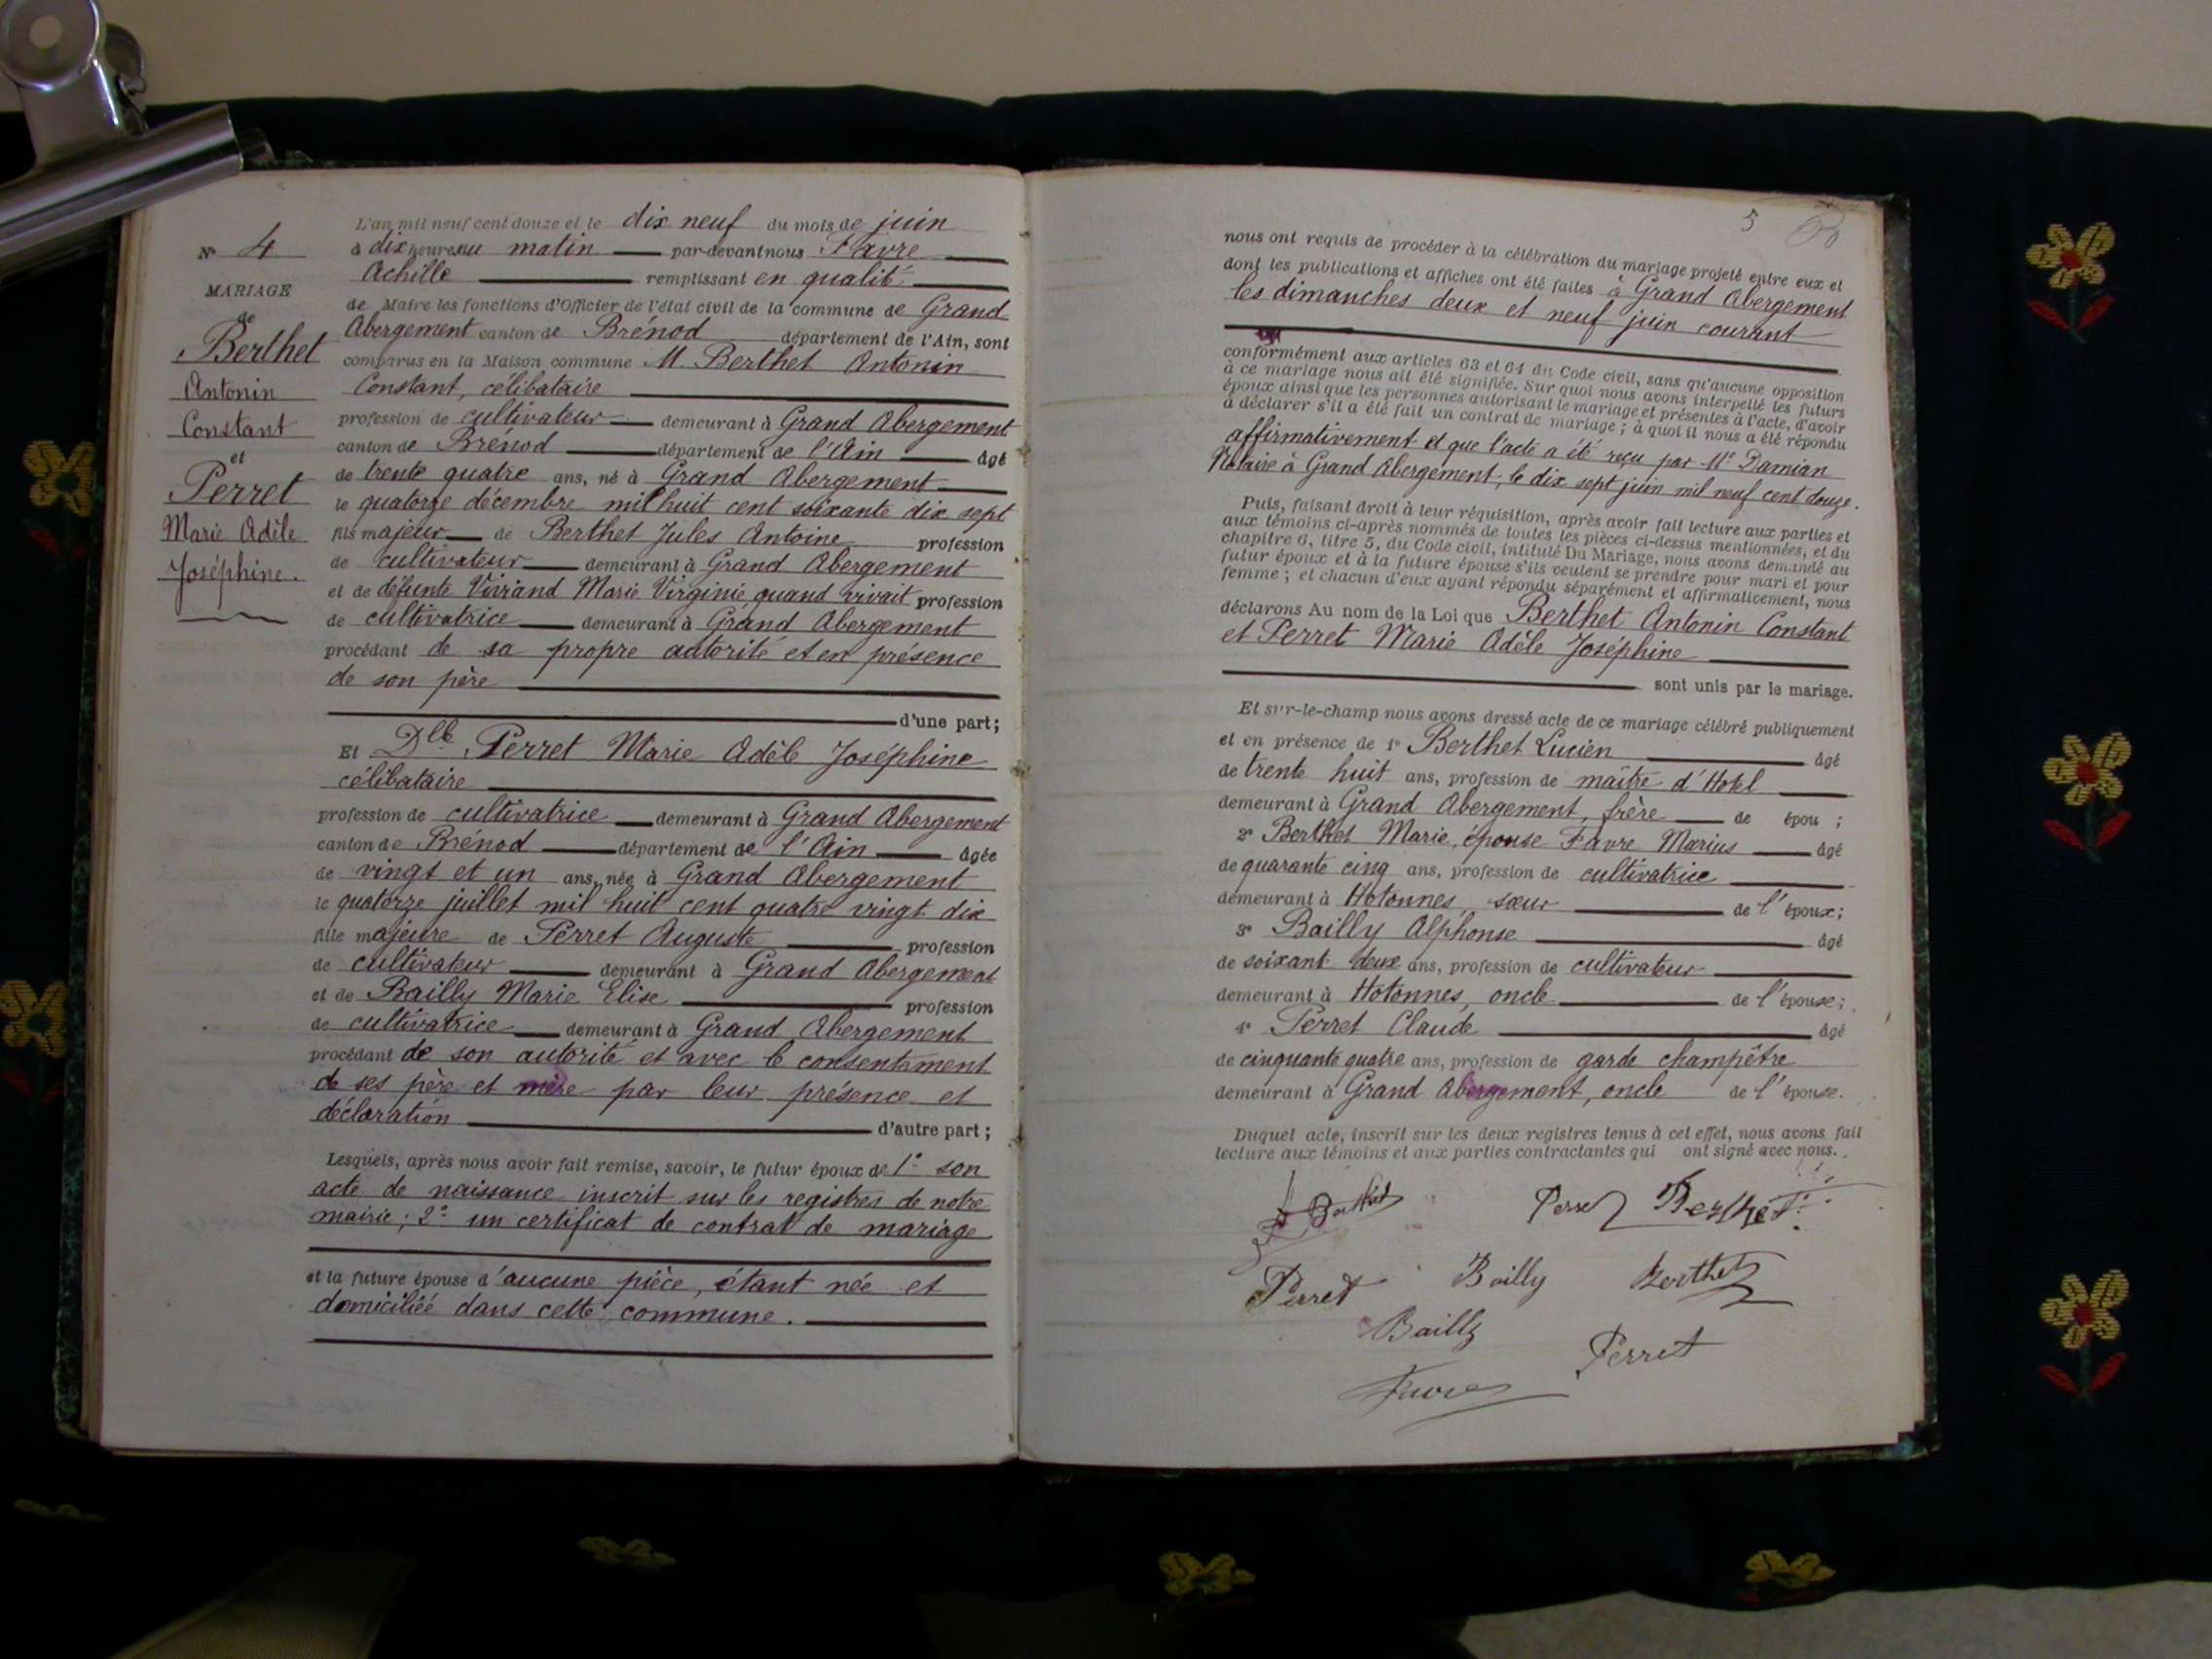 N° 4
MARIAGE
de
Berthet
Antonin
Constant
et
Perret
Marie Adèle
Joséphine.
L'an mil neuf cent douze et le dix neuf du mois de juin
à dix heures du matin par-devant nous Favre
Achille remplissant en qualité
de Maire les fonctions d'Officier de l'état civil de la commune de Grand
Abergement canton de Brénod département de l'Ain, sont
comparus en la Maison commune M. Berthet Antonin
Constant, célibataire
profession de cultivateur demeurant à Grand Abergement
canton de Brénod département de l'Ain âgé
de trente quatre ans, né à Grand Abergement
le quatorze décembre mil huit cent soixante dix sept
fils majeur de Berthet Jules Antoine profession
de cultivateur demeurant à Grand Abergement
et de défunte Vivrand Marie Virginie quand vivait profession
de cultivatrice demeurant à Grand Abergement
procédant de sa propre autorité et en présence
de son père
d'une part;
Et Dlle Perret Marie Adèle Joséphine
célibataire
profession de cultivatrice demeurant à Grand Abergement
canton de Brénod département de l'Ain âgée
de vingt et un ans, née à Grand Abergement
le quatorze juillet mil huit cent quatre vingt dix
fille majeure de Perret Auguste profession
de cultivateur demeurant à Grand Abergement
et de Bailly Marie Elise profession
de cultivatrice demeurant à Grand Abergement
procédant de son autorité et avec le consentement
de ses père et mère par leur présence et
déclaration d'autre part;
Lesquels, après nous avoir fait remise, savoir, le futur époux de 1° son
acte de naissance inscrit sur les registres de notre
mairie; 2° un certificat de contrat de mariage
et la future épouse d'aucune pièce, étant née et
domiciliée dans cette commune.
5
nous ont requis de procéder à la célébration du mariage projeté entre eux et
dont les publications et affiches ont été faites à Grand Abergement
les dimanches deux et neuf juin courant
conformément aux articles 63 et 64 du Code civil, sans qu'aucune opposition
à ce mariage nous ait été signifiée. Sur quoi nous avons interpellé les futurs
époux ainsi que les personnes autorisant le mariage et présentes à l'acte, d'avoir
à déclarer s'il a été fait un contrat de mariage; à quoi il nous a été répondu
affirmativement et que l'acte a été reçu par Me Damian
Notaire à Grand Abergement, le dix sept juin mil neuf cent douze.
Puis, faisant droit à leur réquisition, après avoir fait lecture aux parties et
aux témoins ci-après nommés de toutes les pièces ci-dessus mentionnées, et du
chapitre 6, titre 5, du Code civil, intitulé Du Mariage, nous avons demandé au
futur époux et à la future épouse s'ils veulent se prendre pour mari et pour
femme; et chacun d'eux ayant répondu séparément et affirmativement, nous
déclarons Au nom de la Loi que Berthet Antonin Constant
et Perret Marie Adèle Joséphine
sont unis par le mariage.
Et sur-le-champ nous avons dressé acte de ce mariage célébré publiquement
et en présence de 1° Berthet Lucien âgé
de trente huit ans, profession de maître d'Hotel
demeurant à Grand Abergement, frère de épou ;
2° Berthet Marie, épouse Favre Marius âgé
de quarante cinq ans, profession de cultivatrice
demeurant à Hotonnes, sœur de l'époux;
3° Bailly Alphonse âgé
de soixant deux ans, profession de cultivateur
demeurant à Hotonnes, oncle de l'épouse;
4° Perret Claude âgé
de cinquante quatre ans, profession de garde champêtre
demeurant à Grand Abergement, oncle de l'épouse.
Duquel acte, inscrit sur les deux registres tenus à cet effet, nous avons fait
lecture aux témoins et aux parties contractantes qui ont signé avec nous.
Berthet Perret Berthet
Perret Bailly Berthet
Bailly Perret
Favre